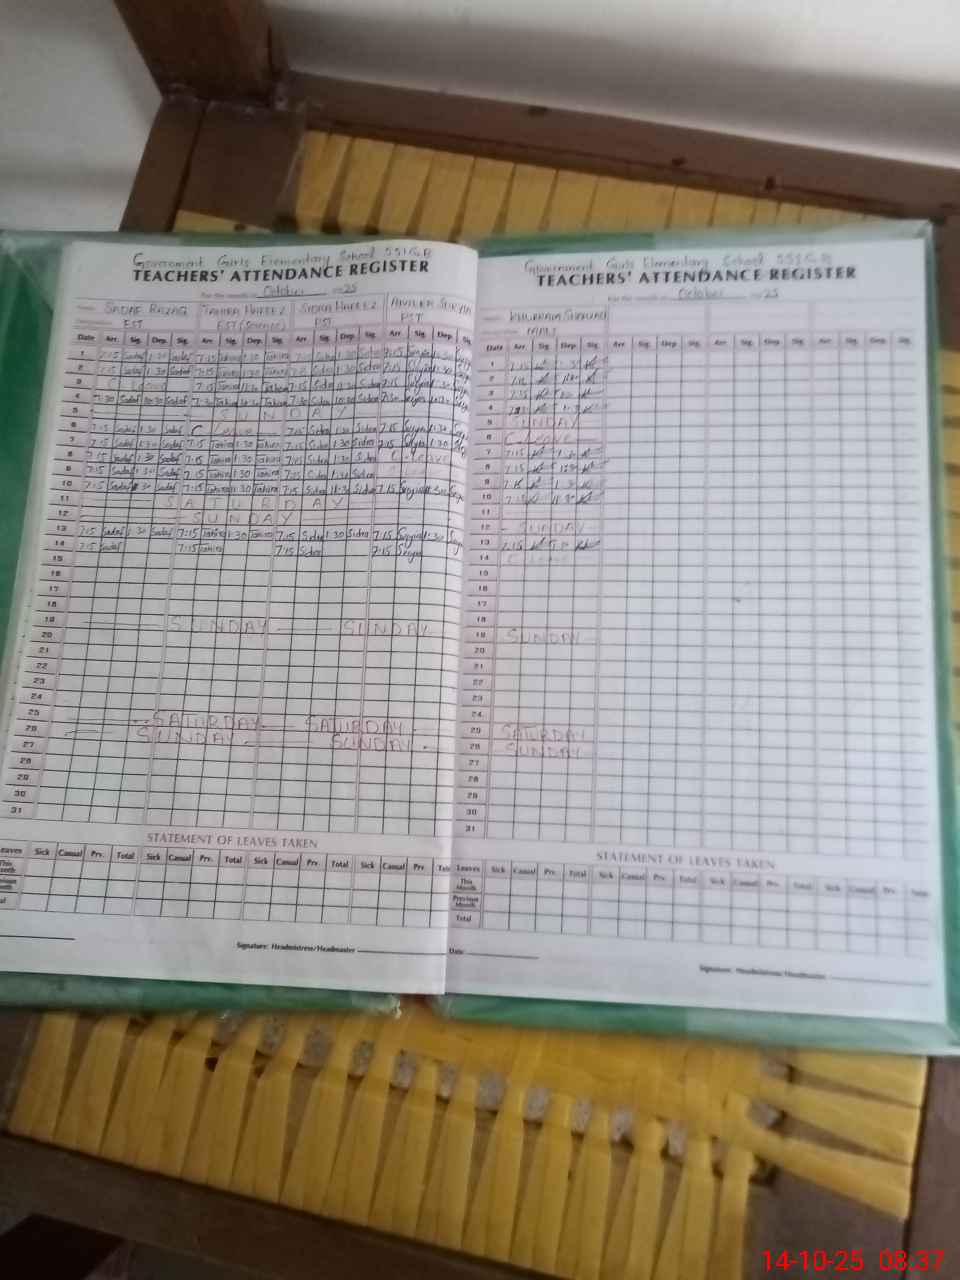 Government Girls Elementary School 551GB
TEACHERS' ATTENDANCE REGISTER
For the month of October 2025
Name SADAF RAZAQ TAHIRA HAFEEZ SIDRA HAFEEZ
EST EST (Science) PST PST
Date Arr. Sig. Dep. Sig. Arr. Sig. Dep. Sig. Arr. Sig. Dep. Sig. Arr. Sig. Dep. Sig.
1 7:15 Sadaf 1:30 Sadaf 7:15 Tahira 1:30 Tahira 7:15 Sidra 1:30 Sidra 7:15
2 7:15 Sadaf 1:30 Sadaf 7:15 Tahira 1:30 7:15 Sidra 1:30 Sidra 7:15
3 C Leave 7:15 Tahira Tahira 7:15 Sidra Sidra 7:15
4 7:30 Sadaf Sadaf 7:30 Tahira Tahira 7:30 Sidra Sidra 7:30
5 SUNDAY
6 7:15 Sadaf 1:30 Sadaf C Leave 7:15 Sidra 1:30 Sidra 7:15 1:30
7 7:15 Sadaf 1:30 Sadaf 7:15 Tahira 1:30 Tahira 7:15 Sidra 1:30 Sidra 7:15 1:30
8 7:15 Sadaf 1:30 Sadaf 7:15 Tahira 1:30 Tahira 7:15 Sidra 1:30 Sidra C-Leave
9 7:15 Sadaf 1:30 Sadaf 7:15 Tahira 1:30 Tahira 7:15 Sidra 1:30 Sidra
10 7:15 Sadaf Sadaf 7:15 Tahira 11:30 Tahira 7:15 Sidra 11:30 Sidra 7:15
11 SATURDAY
12 SUNDAY
13 7:15 Sadaf 1:30 Sadaf 7:15 Tahira 1:30 Tahira 7:15 Sidra 1:30 Sidra 7:15 1:30
14 7:15 Sadaf 7:15 Tahira 7:15 Sidra 7:15
15
16
17
18
19 SUNDAY SUNDAY
20
21
22
23
24
25 SATURDAY SATURDAY
26 SUNDAY SUNDAY
27
28
29
30
31
STATEMENT OF LEAVES TAKEN
Leaves Sick Casual Prv. Total Sick Casual Prv. Total Sick Casual Prv. Total Sick Casual Prv.
This
Signature: Headmistress/Headmaster
Government Girls Elementary School 551GB
TEACHERS' ATTENDANCE REGISTER
For the month of October 2025
Name KHURRAM
MALI
Date Arr. Sig. Dep. Sig. Arr. Sig. Dep. Sig. Arr. Sig. Dep. Sig. Arr. Sig. Dep. Sig.
1 7:15
2
3 7:15
4
5 SUNDAY
6 C-Leave
7 7:15
8 7:15
9 7:15
10 7:15
11
12 SUNDAY
13 7:15
14 C Leave
15
16
17
18
19 SUNDAY
20
21
22
23
24
25 SATURDAY
26 SUNDAY
27
28
29
30
31
STATEMENT OF LEAVES TAKEN
Leaves Sick Casual Prv. Total Sick Casual Prv. Total Sick Casual Prv. Total Sick Casual Prv. Total
This Month
Previous Month
Total
Date: Signature: Headmistress/Headmaster
14-10-25 08:37